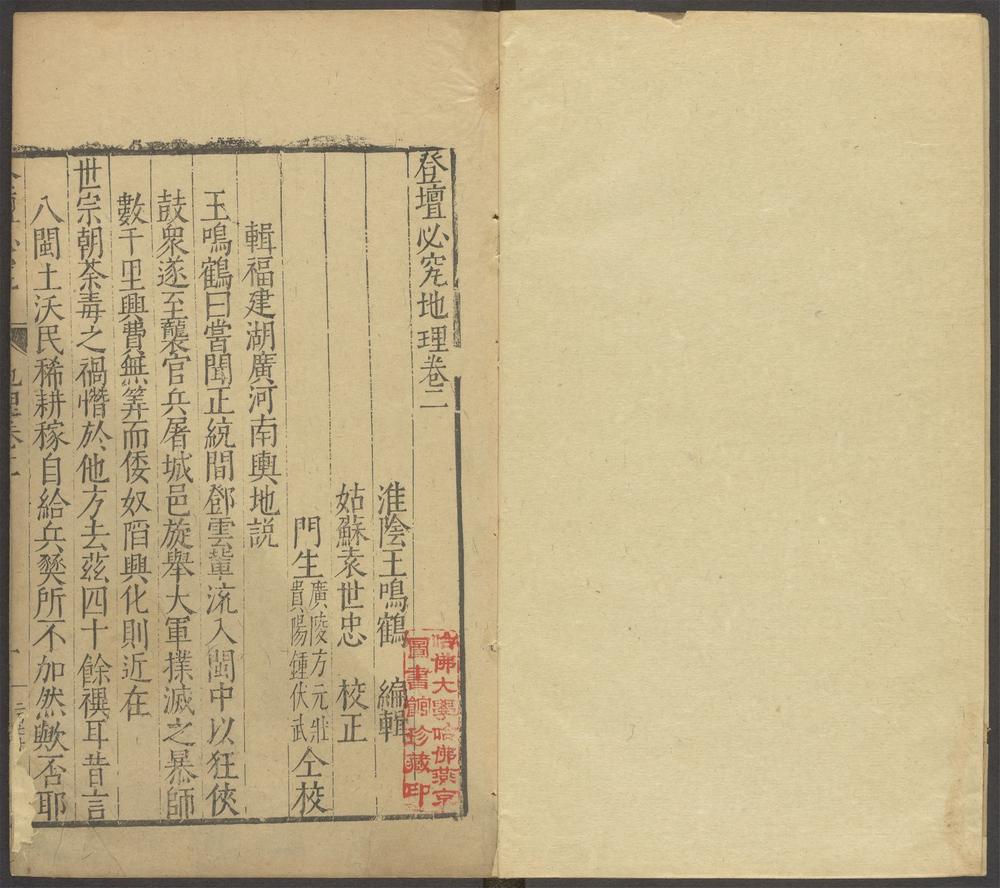 登壇必究地理卷二
淮陰王鳴鶴 編輯
姑蘇袁世忠 校正
門生廣陵方元壯貴陽鍾伏武仝校
輯福建湖廣河南輿地説
王鳴鶴曰嘗聞正統間鄧雲輩流入閩中以狂俠
鼓衆遂至襲官兵屠城邑旋舉大軍撲滅之暴師
數千里興費無筭而倭奴陷興化則近在
世宗朝荼毒之禍憯於他方去茲四十餘禩耳昔言
八閩土沃民稀耕稼自給兵燹所不加然歟否耶
地理卷二
哈佛大學哈佛燕京
圖書館珍藏印